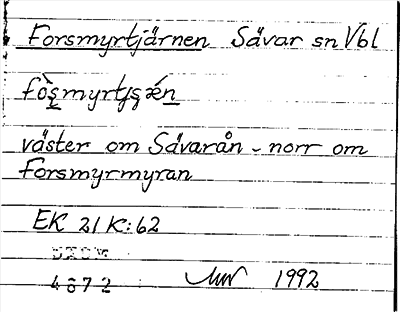 Forsmyrtjärnen Sävar sn Vbl
väster om Sävarån - norr om
Forsmyrmyran
EK 21 K:62
4872
1992